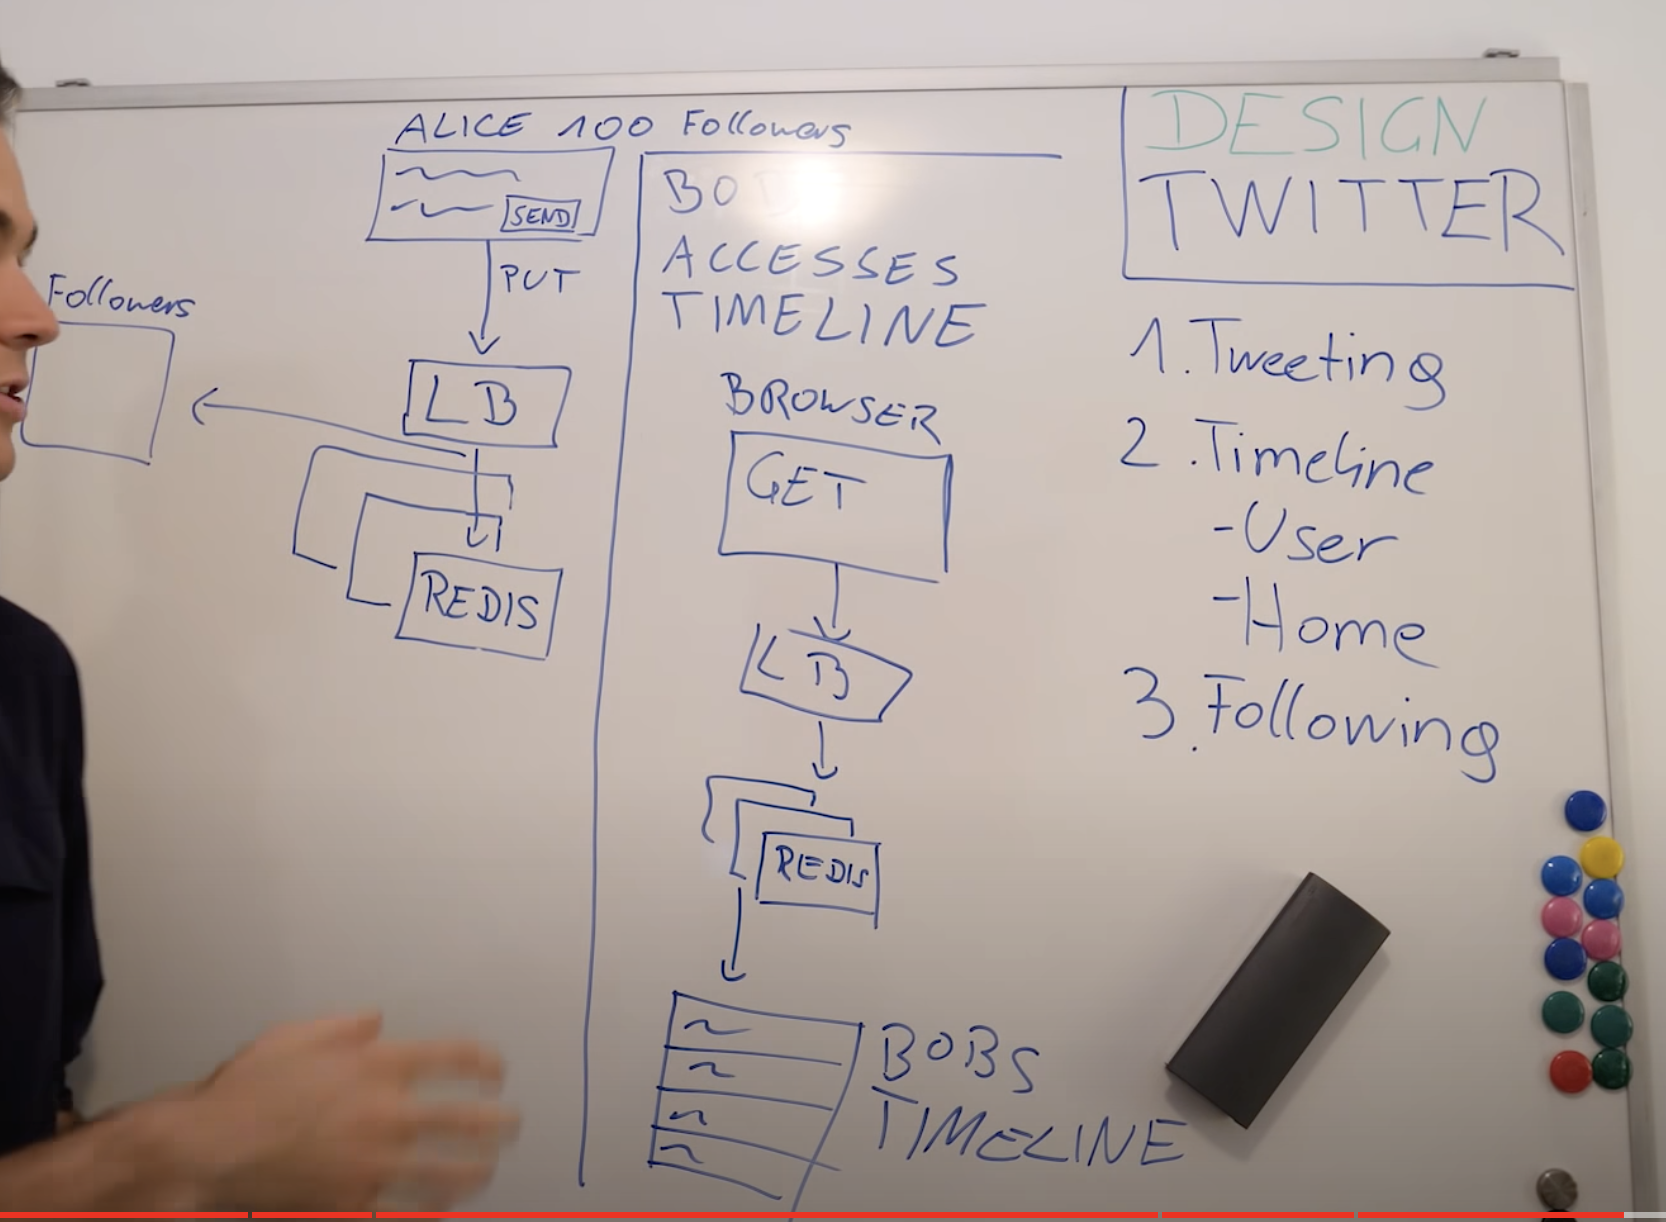 ALICE 100 Followers
SEND
PUT
Followers
LB
REDIS
BO
ACCESSES
TIMELINE
BROWSER
GET
LB
REDIS
BOBS
TIMELINE
DESIGN
TWITTER
1. Tweeting
2. Timeline
- User
- Home
3. Following